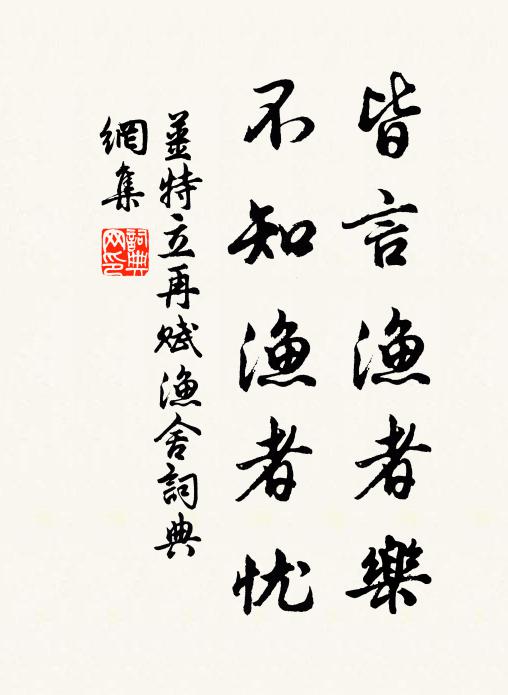 皆言渔者樂
不知渔者忧
姜特立再赋渔舍詞典
網集
詞典
网印